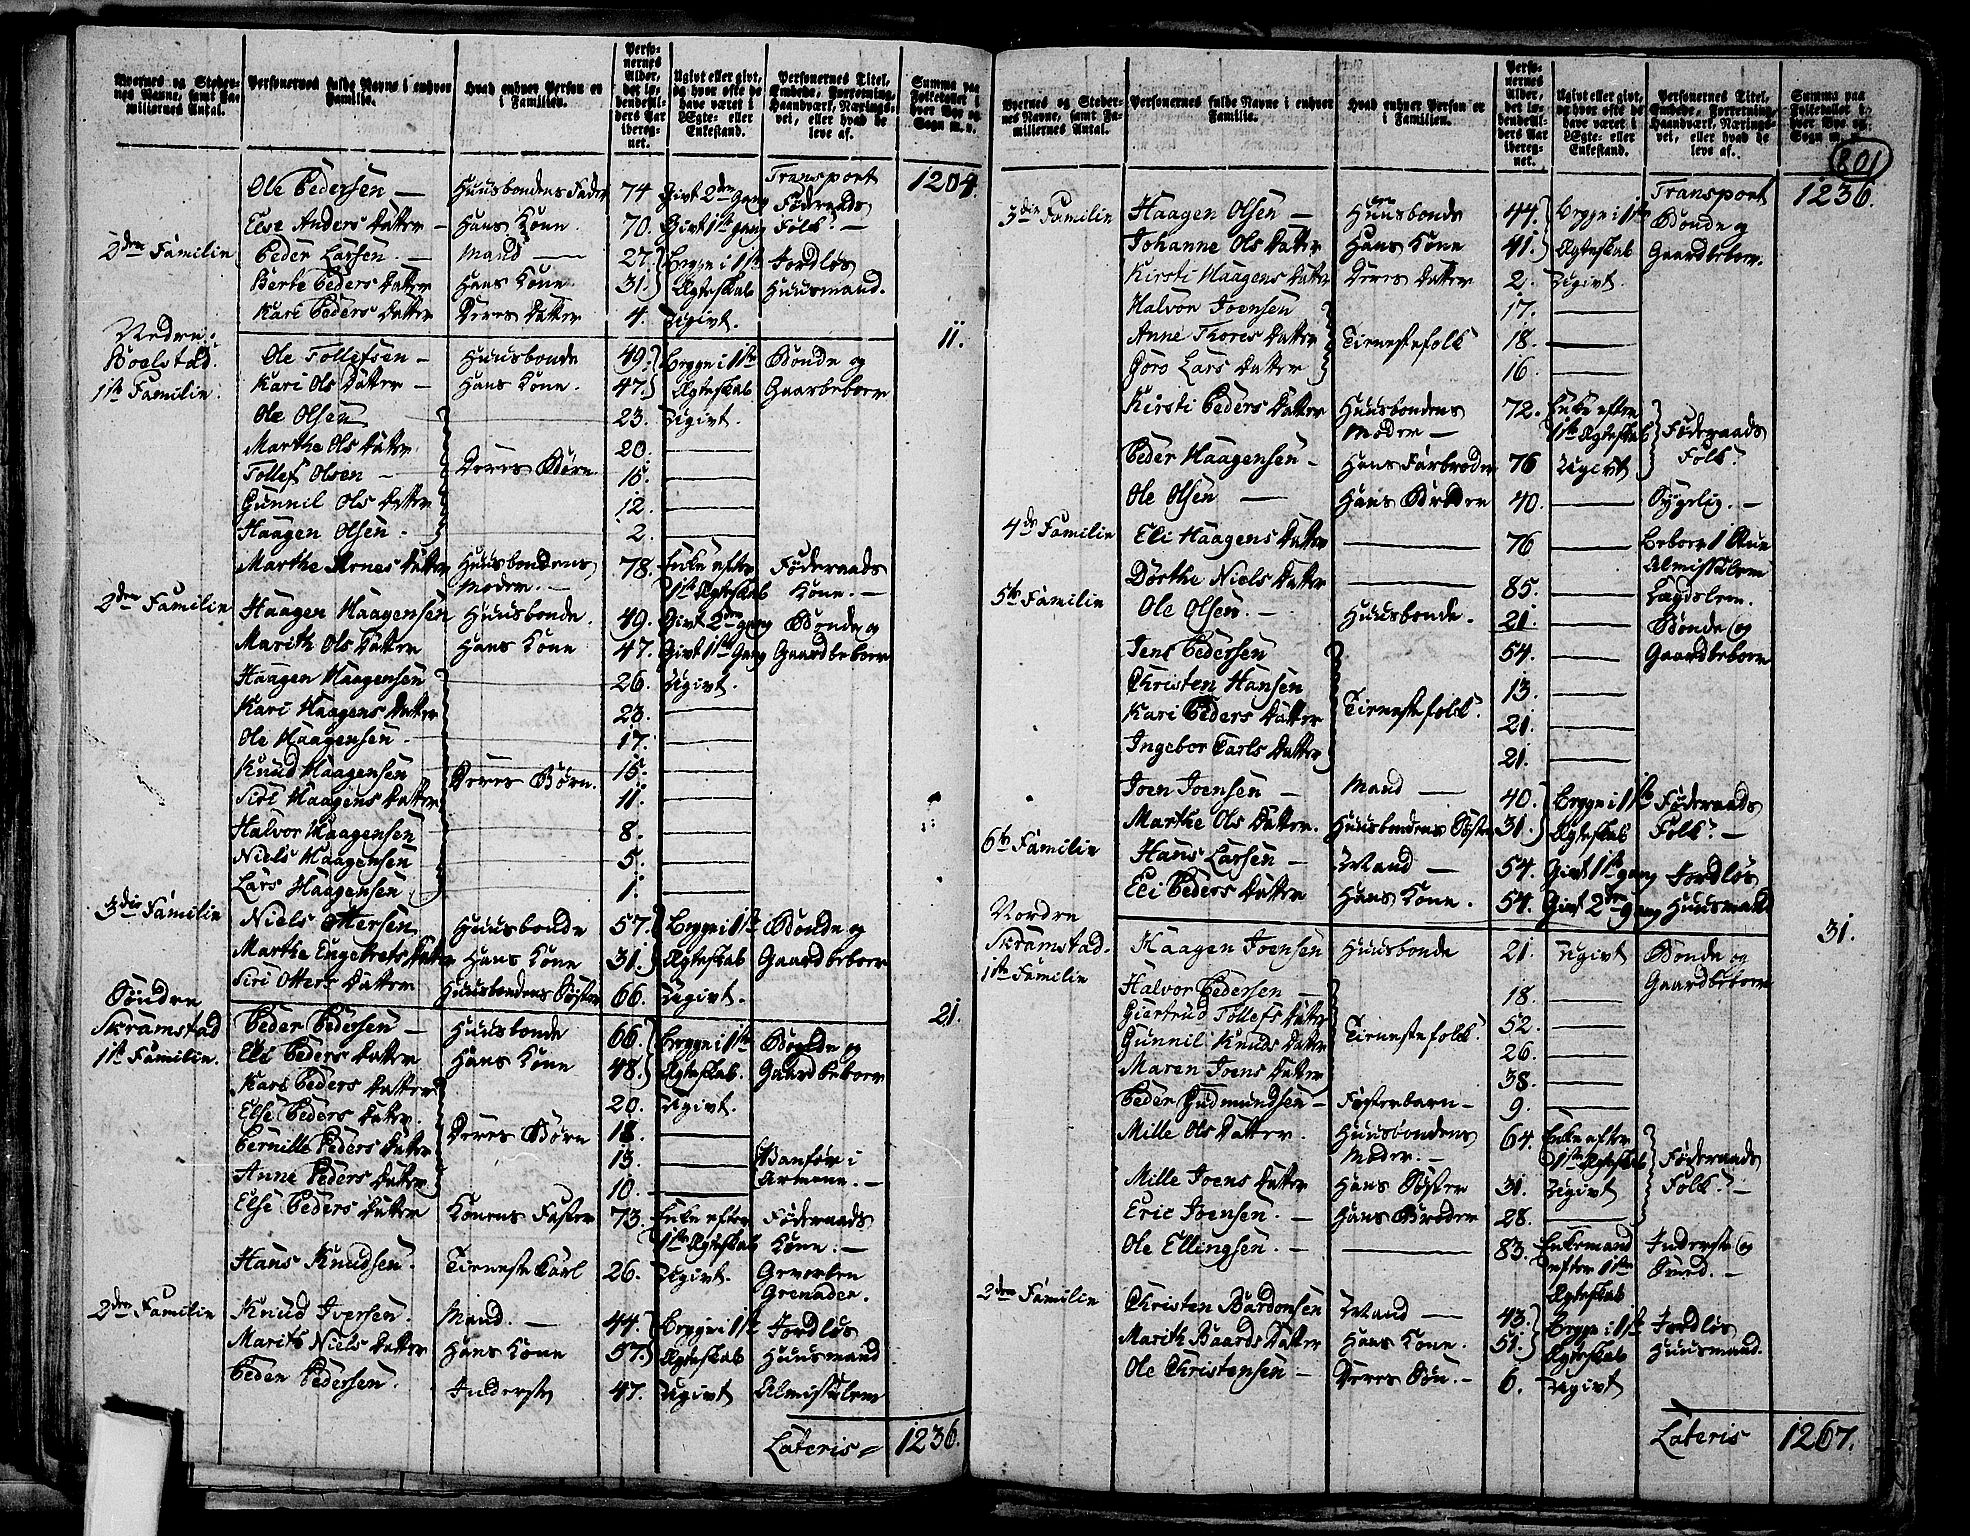 Gaardernes og Stedernes Navne, samt Familiernes Antal. | Personernes fulde Navne i enhver Familie. | Hvad enhver Person er i Familien. | Personernes Alder, det løbendeAlders Aar iberegnet. | Ugivt eller givt, og hvor ofte de have været i Ægte- eller Enkestand. | Personernes Titel, Embede, Forretning, Haandværk, Næringsvei, eller hvad de leve af. | Summa paa Folketallet i hver Bye og Sogn m. v.
Transport 1204
Ole Pedersen — Huusbondens Fader 74 Givt 2den Gang Føderaads
Else Anders Datter — Hans Kone. 70. Givt 1ste gang Folk. —
2den Familie Peder Larsen. — Mand — 27. Begge i 1ste Jordløs
Berte Peders Datter Hans Kone. 31. Ægteskab Huusmand.
Kari Peders Datter Deres Datter 4. Ugivt.
11.
Nedre
Boelstad.
1ste Familie. Ole Tollefsen — Huusbonde 49. Begge i 1ste Bonde og
Kari Ols Datter — Hans Kone. 47. Ægteskab Gaardbeboer
Ole Olsen 23. Ugivt.
Marthe Ols Datter 20. —
Tollef Olsen — Deres Børn 15. —
Gunnil Ols Datter 12. —
Haagen Olsen. 2. —
Marthe Arnes Datter Huusbondens 78. Enke efter Føderaads
Moder. — 1ste Ægteskab Kone. —
2den Familie Haagen Haagensen Huusbonde. 49. Givt 2den gang Bonde og
Marith Ols Datter Hans Kone 47. Givt 1ste Gang Gaardbeboer
Haagen Haagensen 26. Ugivt.
Kari Haagens Datter 23. —
Ole Haagensen — 17. —
Knud Haagensen Deres Børn. 15. —
Siri Haagens Datter 11. —
Halvor Haagensen 8. —
Niels Haagensen 5. —
Lars Haagensen 1. —
3die Familie Niels Ottersen Huusbonde 57. Begge i 1ste Bonde og
Marthe Engebrets Datter Hans Kone 31. Ægteskab Gaardbeboer
Siri Otters Datter Huusbondens Søster 66. Ugivt.
21.
Søndre
Skramstad
1ste Familie. Peder Pedersen — Huusbonde 66. Begge i 1ste Bonde og
Eli Peders Datter Hans Kone 48. Ægteskab. Gaardbeboer
Kari Peders Datter 20. Ugivt.
Else Peders Datter. Deres Børn 18. —
Pernille Peders Datter 13. — Vanfør i
Anne Peders Datter 10. — Armene. —
Else Peders Datter Konens Faster 73. Enke efter Føderaads
1ste Ægteskab Kone. —
Hans Knudsen. Tieneste Karl 26. Ugivt. Gevorben
Grenader.
2den Familie Knud Iversen. Mand. — 44. Begge i 1ste Jordløs
Marith Niels Datter Hans Kone 57. Ægteskab Huusmand
Peder Pedersen. Inderste 47. Ugivt Almisselem
Lateris — 1236.
801
Gaardernes og Stedernes Navne, samt Familiernes Antal. | Personernes fulde Navne i enhver Familie. | Hvad enhver Person er i Familien. | Personernes Alder, det løbendeAlders Aar iberegnet. | Ugivt eller givt, og hvor ofte de have været i Ægte- eller Enkestand. | Personernes Titel, Embede, Forretning, Haandværk, Næringsvei, eller hvad de leve af. | Summa paa Folketallet i hver Bye og Sogn m. v.
Transport 1236.
3die Familie Haagen Olsen — Huusbonde 44. Begge i 1ste Bonde og
Johanne Ols Datter Hans Kone 41. Ægteskab Gaardbeboer.
Kirsti Haagens Datter Deres Datter 2. Ugivt.
Halvor Joensen 17. —
Anne Thores Datter Tienestefolk 18. —
Goro Lars Datter 16. —
Kirsti Peders Datter Huusbondens 72. Enke efter
Moder — 1ste Ægteskab Føderaads
Peder Haagensen — Hans Farbroder 76 Ugivt Folk.
Ole Olsen — Hans Broder 40. — Sygelig. —
4de Familie Eli Haagens Datter — 76 — Beboer 1 Rum
Almisselem
5te Familie Dorthe Niels Datter — 85. — Lægdslem.
Ole Olsen. — Huusbonde. 21. — Bonde og
Jens Pedersen 54. — Gaardbeboer
Christen Hansen 13. —
Kari Peders Datter Tienestefolk. 21. —
Ingebor Carls Datter 21. —
Joen Joensen — Mand — 40. Begge i 1ste Føderaads
Marthe Ols Datter. Huusbondens Søster 31. Ægteskab Folk. —
6te Familie Hans Larsen — Mand — 54. Givt 1ste gang Jordløs
Eli Peders Datter Hans Kone. 54. Givt 2den gang Huusmand
31.
Nordre
Skramstad.
1ste Familie Haagen Joensen Huusbonde 21. Ugivt Bonde og
Halvor Pedersen — 18. — Gaardbeboer
Giertrud Tollefs Datter Tienestefolk. 52. —
Gunnil Knuds Datter 26. —
Maren Joens Datter 38. —
Peder Gudmundsen — Fosterbarn — 9. —
Mille Ols Datter. Huusbondens 64. Enke efter
Moder. — 1ste Ægteskab Føderaads
Mille Joens Datter Hans Søster 31. Ugivt Folk. —
Eric Joensen. — Hans Broder 28. —
Ole Ellingsen. — — 83. Enkemand Inderste og
efter 1ste
Ægteskab
2den Familie Christen Bardonsen Mand — 43. Begge i 1ste Jordløs
Marith Baards Datter Hans Kone. 51. Ægteskab Huusmand.
Ole Christensen — Deres Søn. — 6. Ugivt
Lateris 1267.